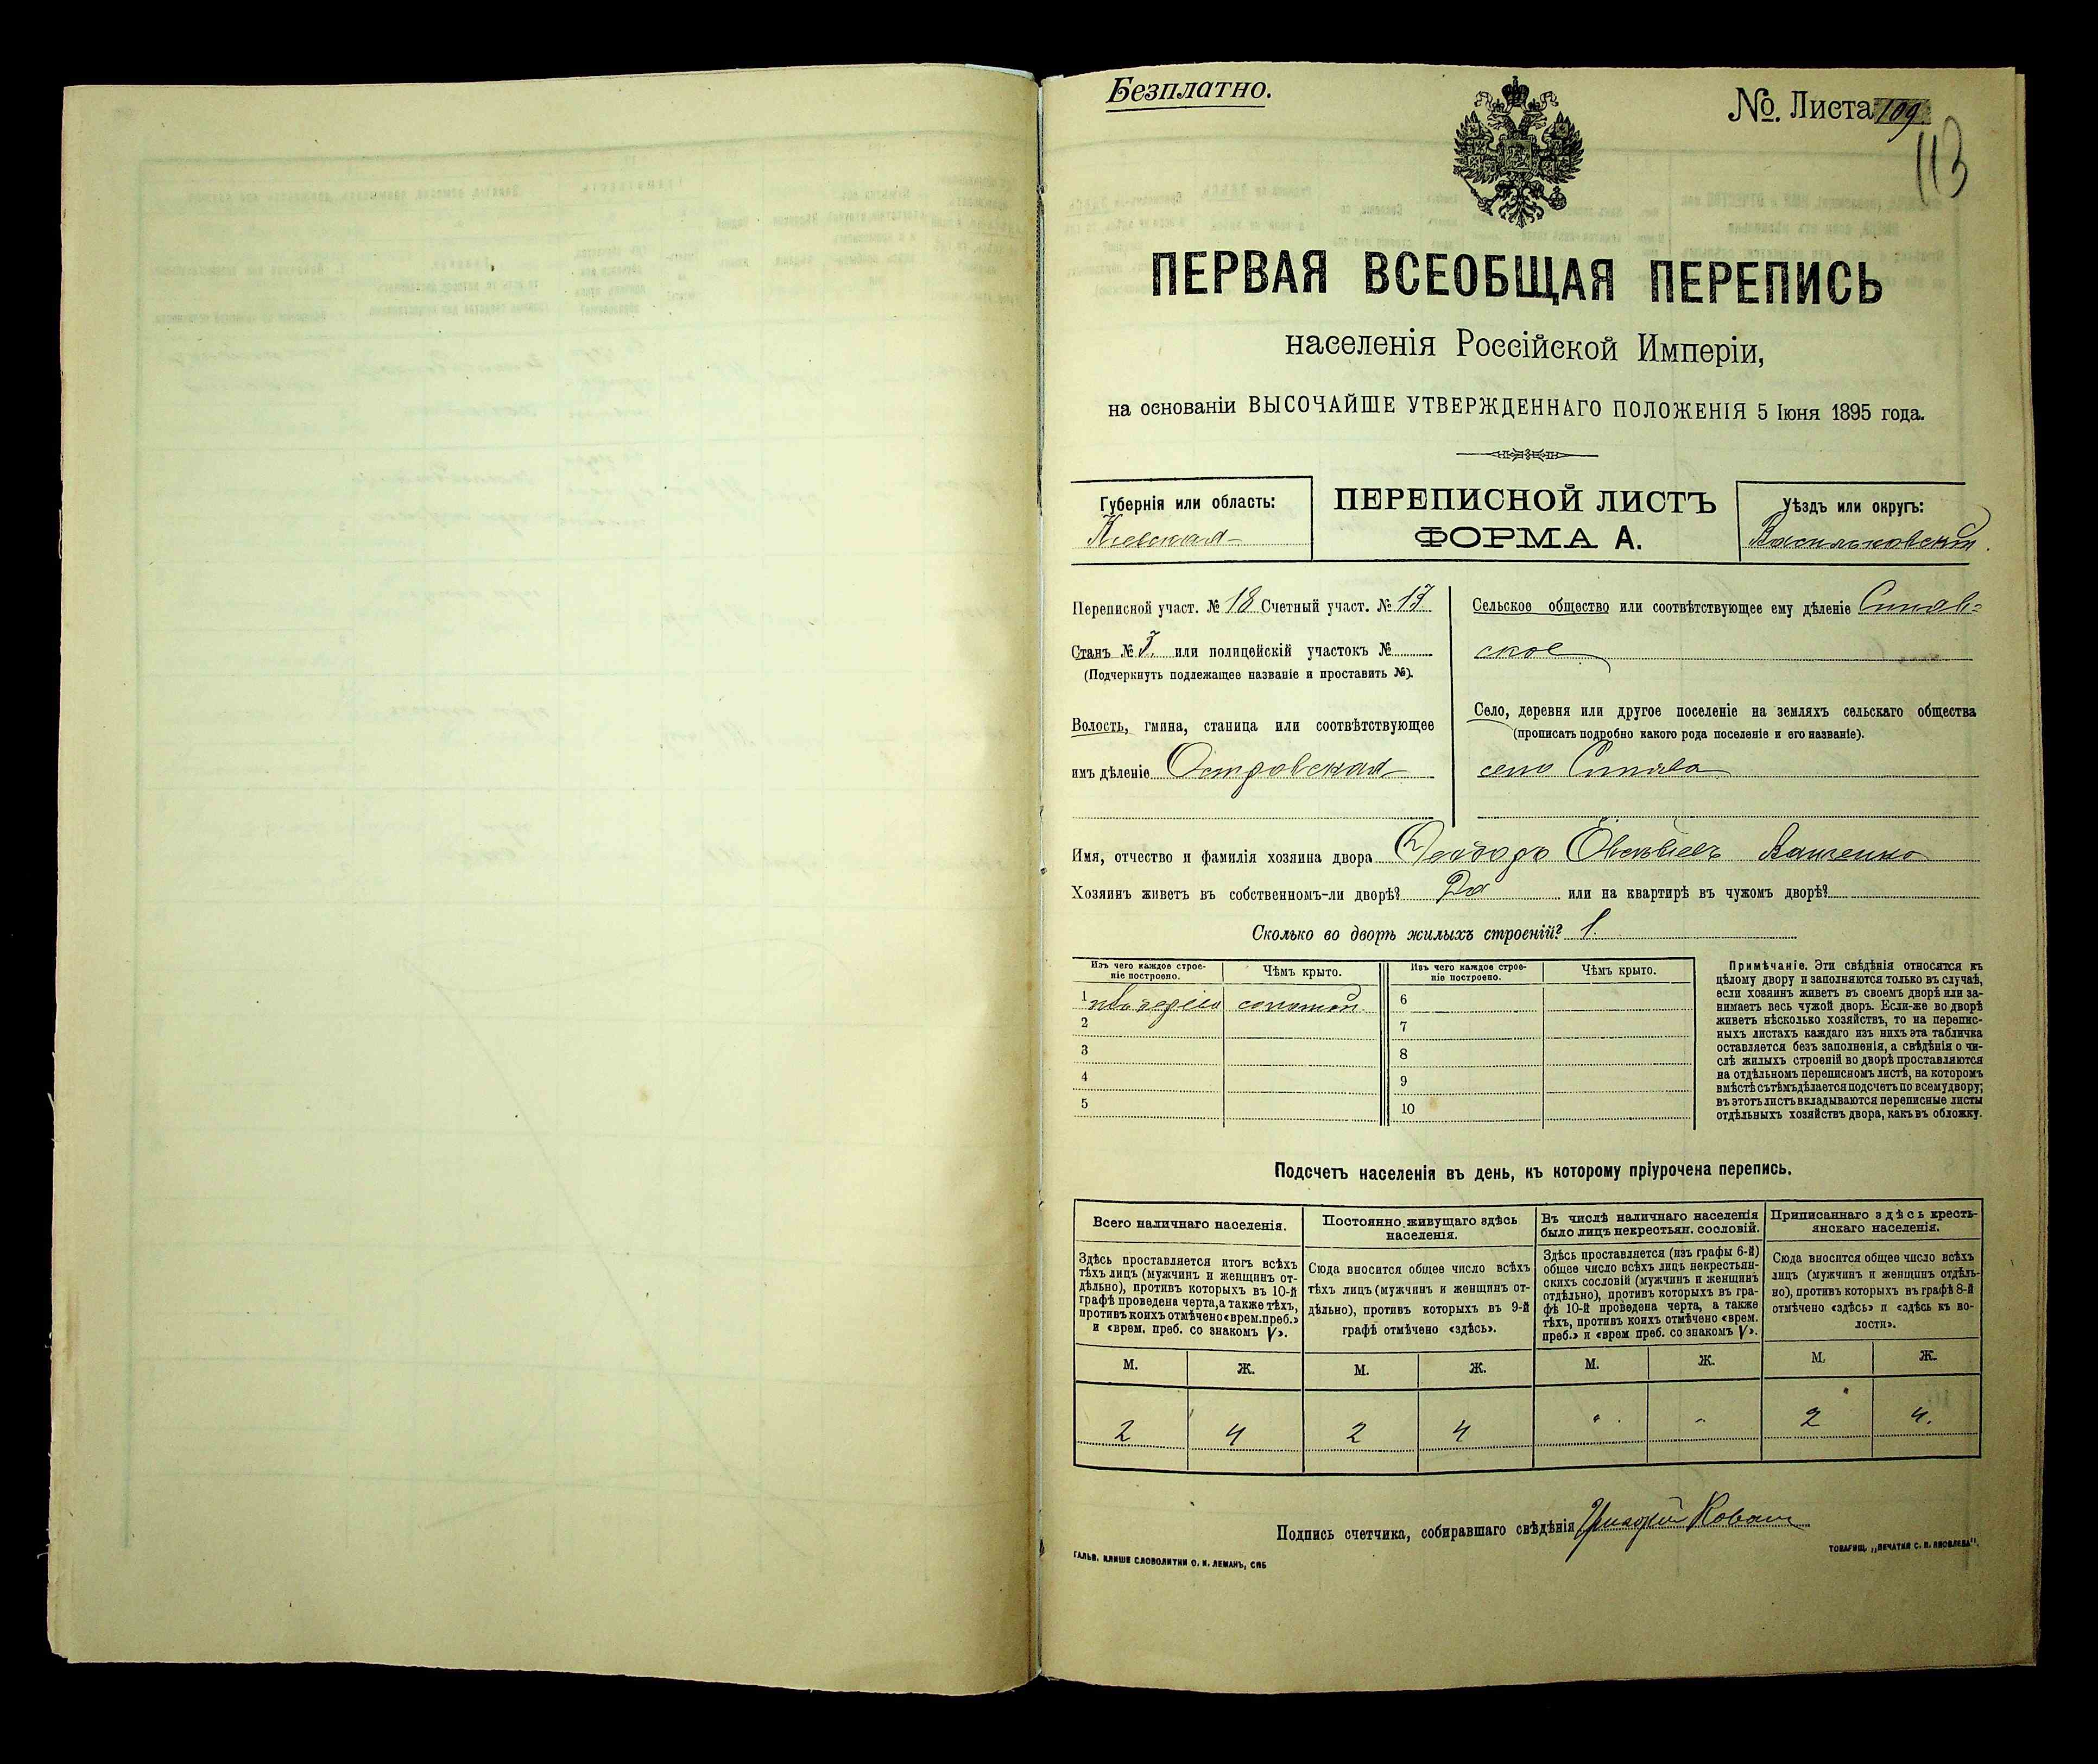 Безплатно.
№. Листа 109
113
ПЕРВАЯ ВСЕОБЩАЯ ПЕРЕПИСЬ
населенія Россійской Имперіи,
на основаніи ВЫСОЧАЙШЕ УТВЕРЖДЕННАГО ПОЛОЖЕНІЯ 5 Іюня 1895 года.
Губернія или область:
Кіевская
ПЕРЕПИСНОЙ ЛИСТЪ
ФОРМА А.
Уѣздъ или округъ:
Васильковскій
Переписной участ. № 18 Счетный участ. № 17
Станъ № 3. или полицейскій участокъ №
(Подчеркнуть подлежащее названіе и проставить №).
Волость, гмина, станица или соотвѣтствующее
имъ дѣленіе Островская
Сельское общество или соотвѣтствующее ему дѣленіе Синяв-
ское
Село, деревня или другое поселеніе на земляхъ сельскаго общества
(прописать подробно какого рода поселеніе и его названіе).
село Синява
Имя, отчество и фамилія хозяина двора Ѳеодоръ Ващенко
Хозяинъ живетъ въ собственномъ-ли дворѣ? Да или на квартирѣ въ чужомъ дворѣ?
Сколько во дворѣ жилыхъ строеній? 1.
Изъ чего каждое строе-
ніе построено.
Чѣмъ крыто.
Изъ чего каждое строе-
ніе построено.
Чѣмъ крыто.
1 изъ дерева соломой
2
3
4
5
6
7
8
9
10
Примѣчаніе. Эти свѣдѣнія относятся къ
цѣлому двору и заполняются только въ случаѣ,
если хозяинъ живетъ въ своемъ дворѣ или за-
нимаетъ весь чужой дворъ. Если-же во дворѣ
живетъ нѣсколько хозяйствъ, то на перепис-
ныхъ листахъ каждаго изъ нихъ эта табличка
оставляется безъ заполненія, а свѣдѣнія о чи-
слѣ жилыхъ строеній во дворѣ проставляются
на отдѣльномъ переписномъ листѣ, на которомъ
вмѣстѣ съ тѣмъ дѣлается подсчетъ по всему двору;
въ этотъ листъ вкладываются переписные листы
отдѣльныхъ хозяйствъ двора, какъ въ обложку.
Подсчетъ населенія въ день, къ которому пріурочена перепись.
Всего наличнаго населенія.
Здѣсь проставляется итогъ всѣхъ
тѣхъ лицъ (мужчинъ и женщинъ от-
дѣльно), противъ которыхъ въ 10-й
графѣ проведена черта, а также тѣхъ,
противъ коихъ отмѣчено «врем. преб.»
и «врем. преб. со знакомъ V».
Постоянно живущаго здѣсь
населенія.
Сюда вносится общее число всѣхъ
тѣхъ лицъ (мужчинъ и женщинъ от-
дѣльно), противъ которыхъ въ 9-й
графѣ отмѣчено «здѣсь».
Въ числѣ наличнаго населенія
было лицъ некрестьян. сословій.
Здѣсь проставляется (изъ графы 6-й)
общее число всѣхъ лицъ некрестьян-
скихъ сословій (мужчинъ и женщинъ
отдѣльно), противъ которыхъ въ гра-
фѣ 10-й проведена черта, а также
тѣхъ, противъ коихъ отмѣчено «врем.
преб.» и «врем преб. со знакомъ V».
Приписаннаго здѣсь кресть-
янскаго населенія.
Сюда вносится общее число всѣхъ
лицъ (мужчинъ и женщинъ отдѣль-
но), противъ которыхъ въ графѣ 8-й
отмѣчено «здѣсь» и «здѣсь къ во-
лости».
М. Ж. М. Ж. М. Ж. М. Ж.
2 4 2 4 " " 2 4.
Подпись счетчика, собиравшаго свѣдѣнія Григорій
ГАЛЬВ. КЛИШЕ СЛОВОЛИТНИ О. И. ЛЕМАНЪ, СПБ
ТОВАРИЩ. „ПЕЧАТНЯ С. П. ЯКОВЛЕВА".